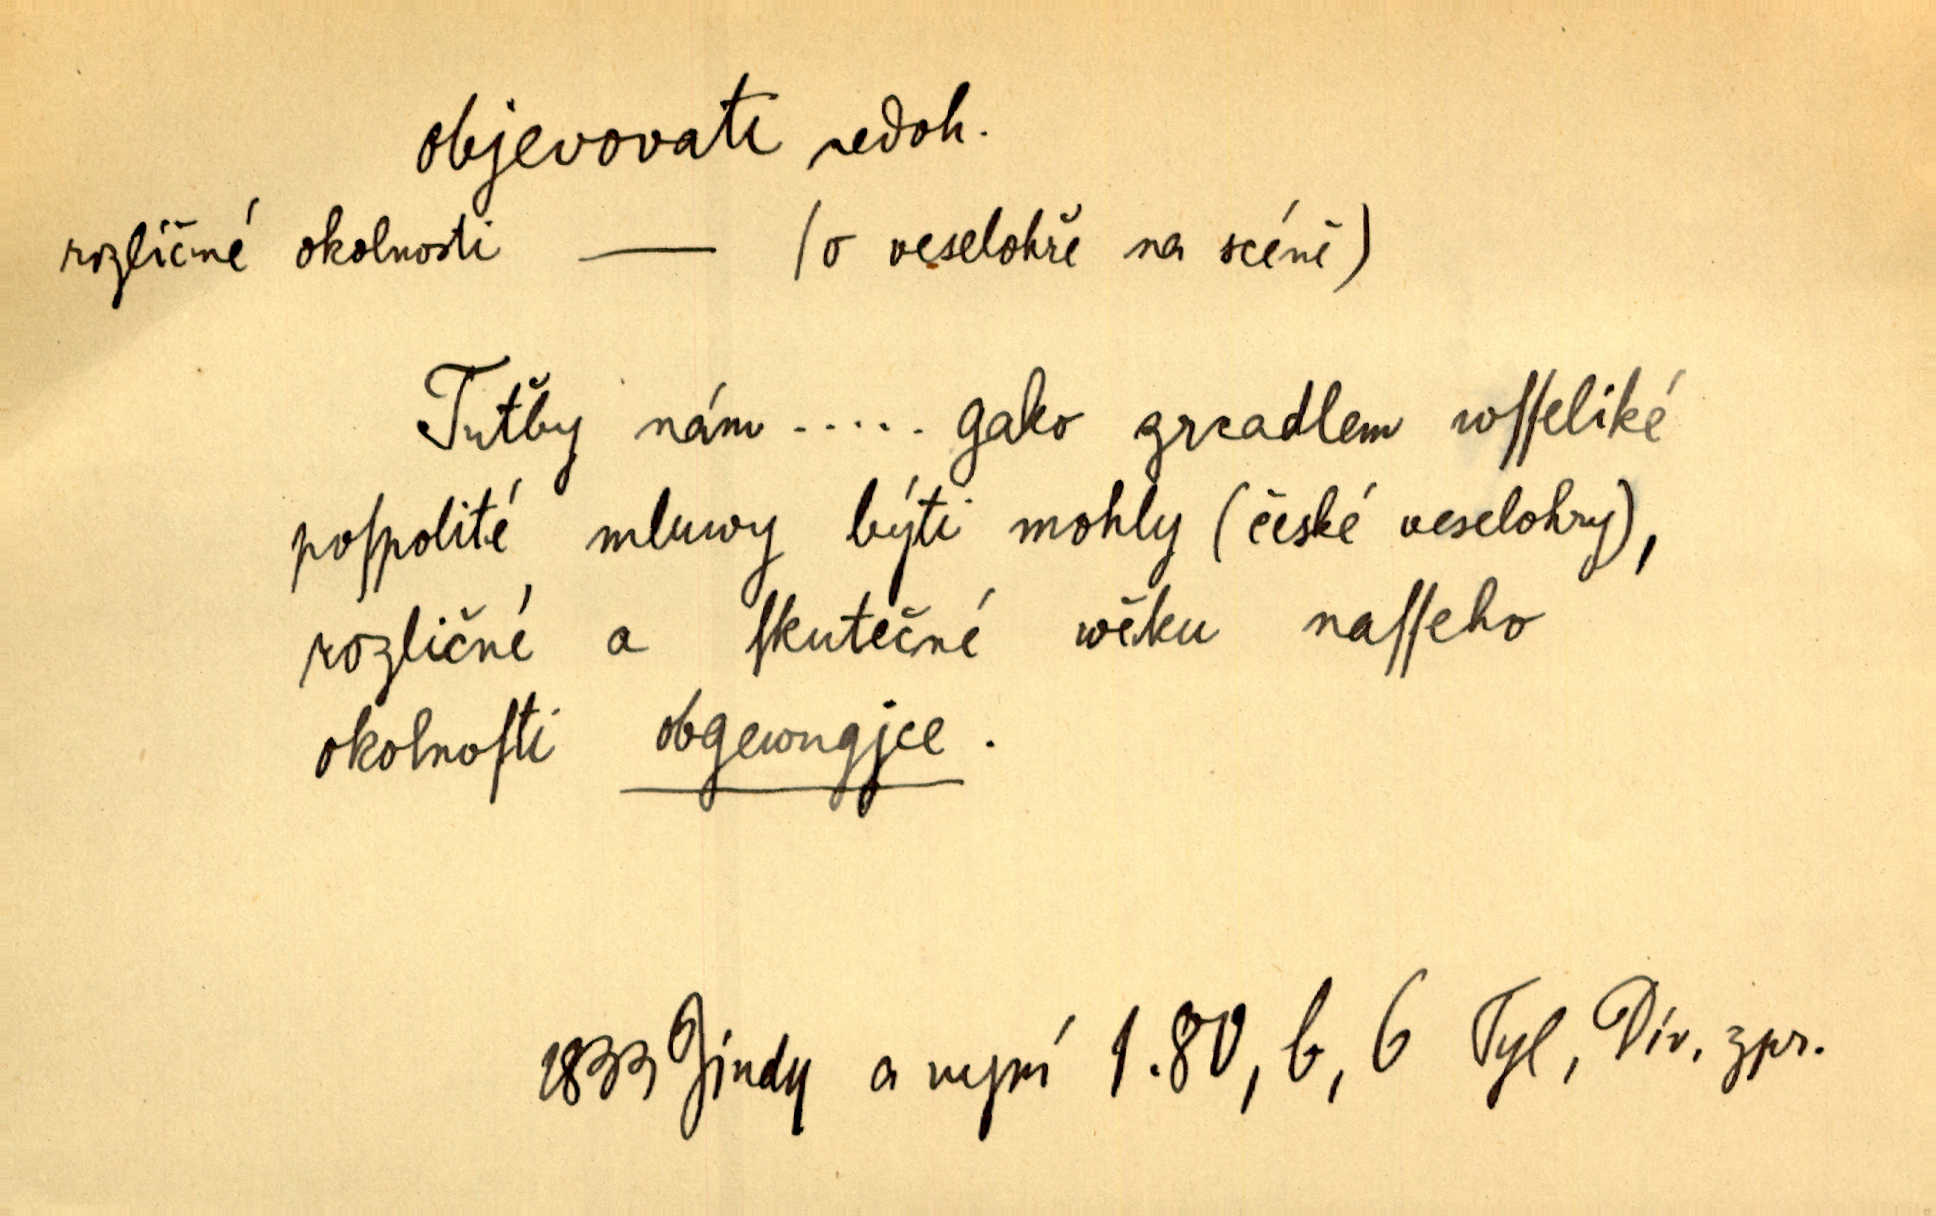 objevovati nedok.
rozličné okolnosti — (o veselohře na scéně)
Tuťby nám ..... gako zrcadlem wſſeliké
poſpolité mluwy býti mohly (české veselohry),
rozličné a ſkutečné wěku naſſeho
okolnoſti obgewugjce.
1833 Jindy a nyní 1.80, b, 6 Tyl, Div. zpr.